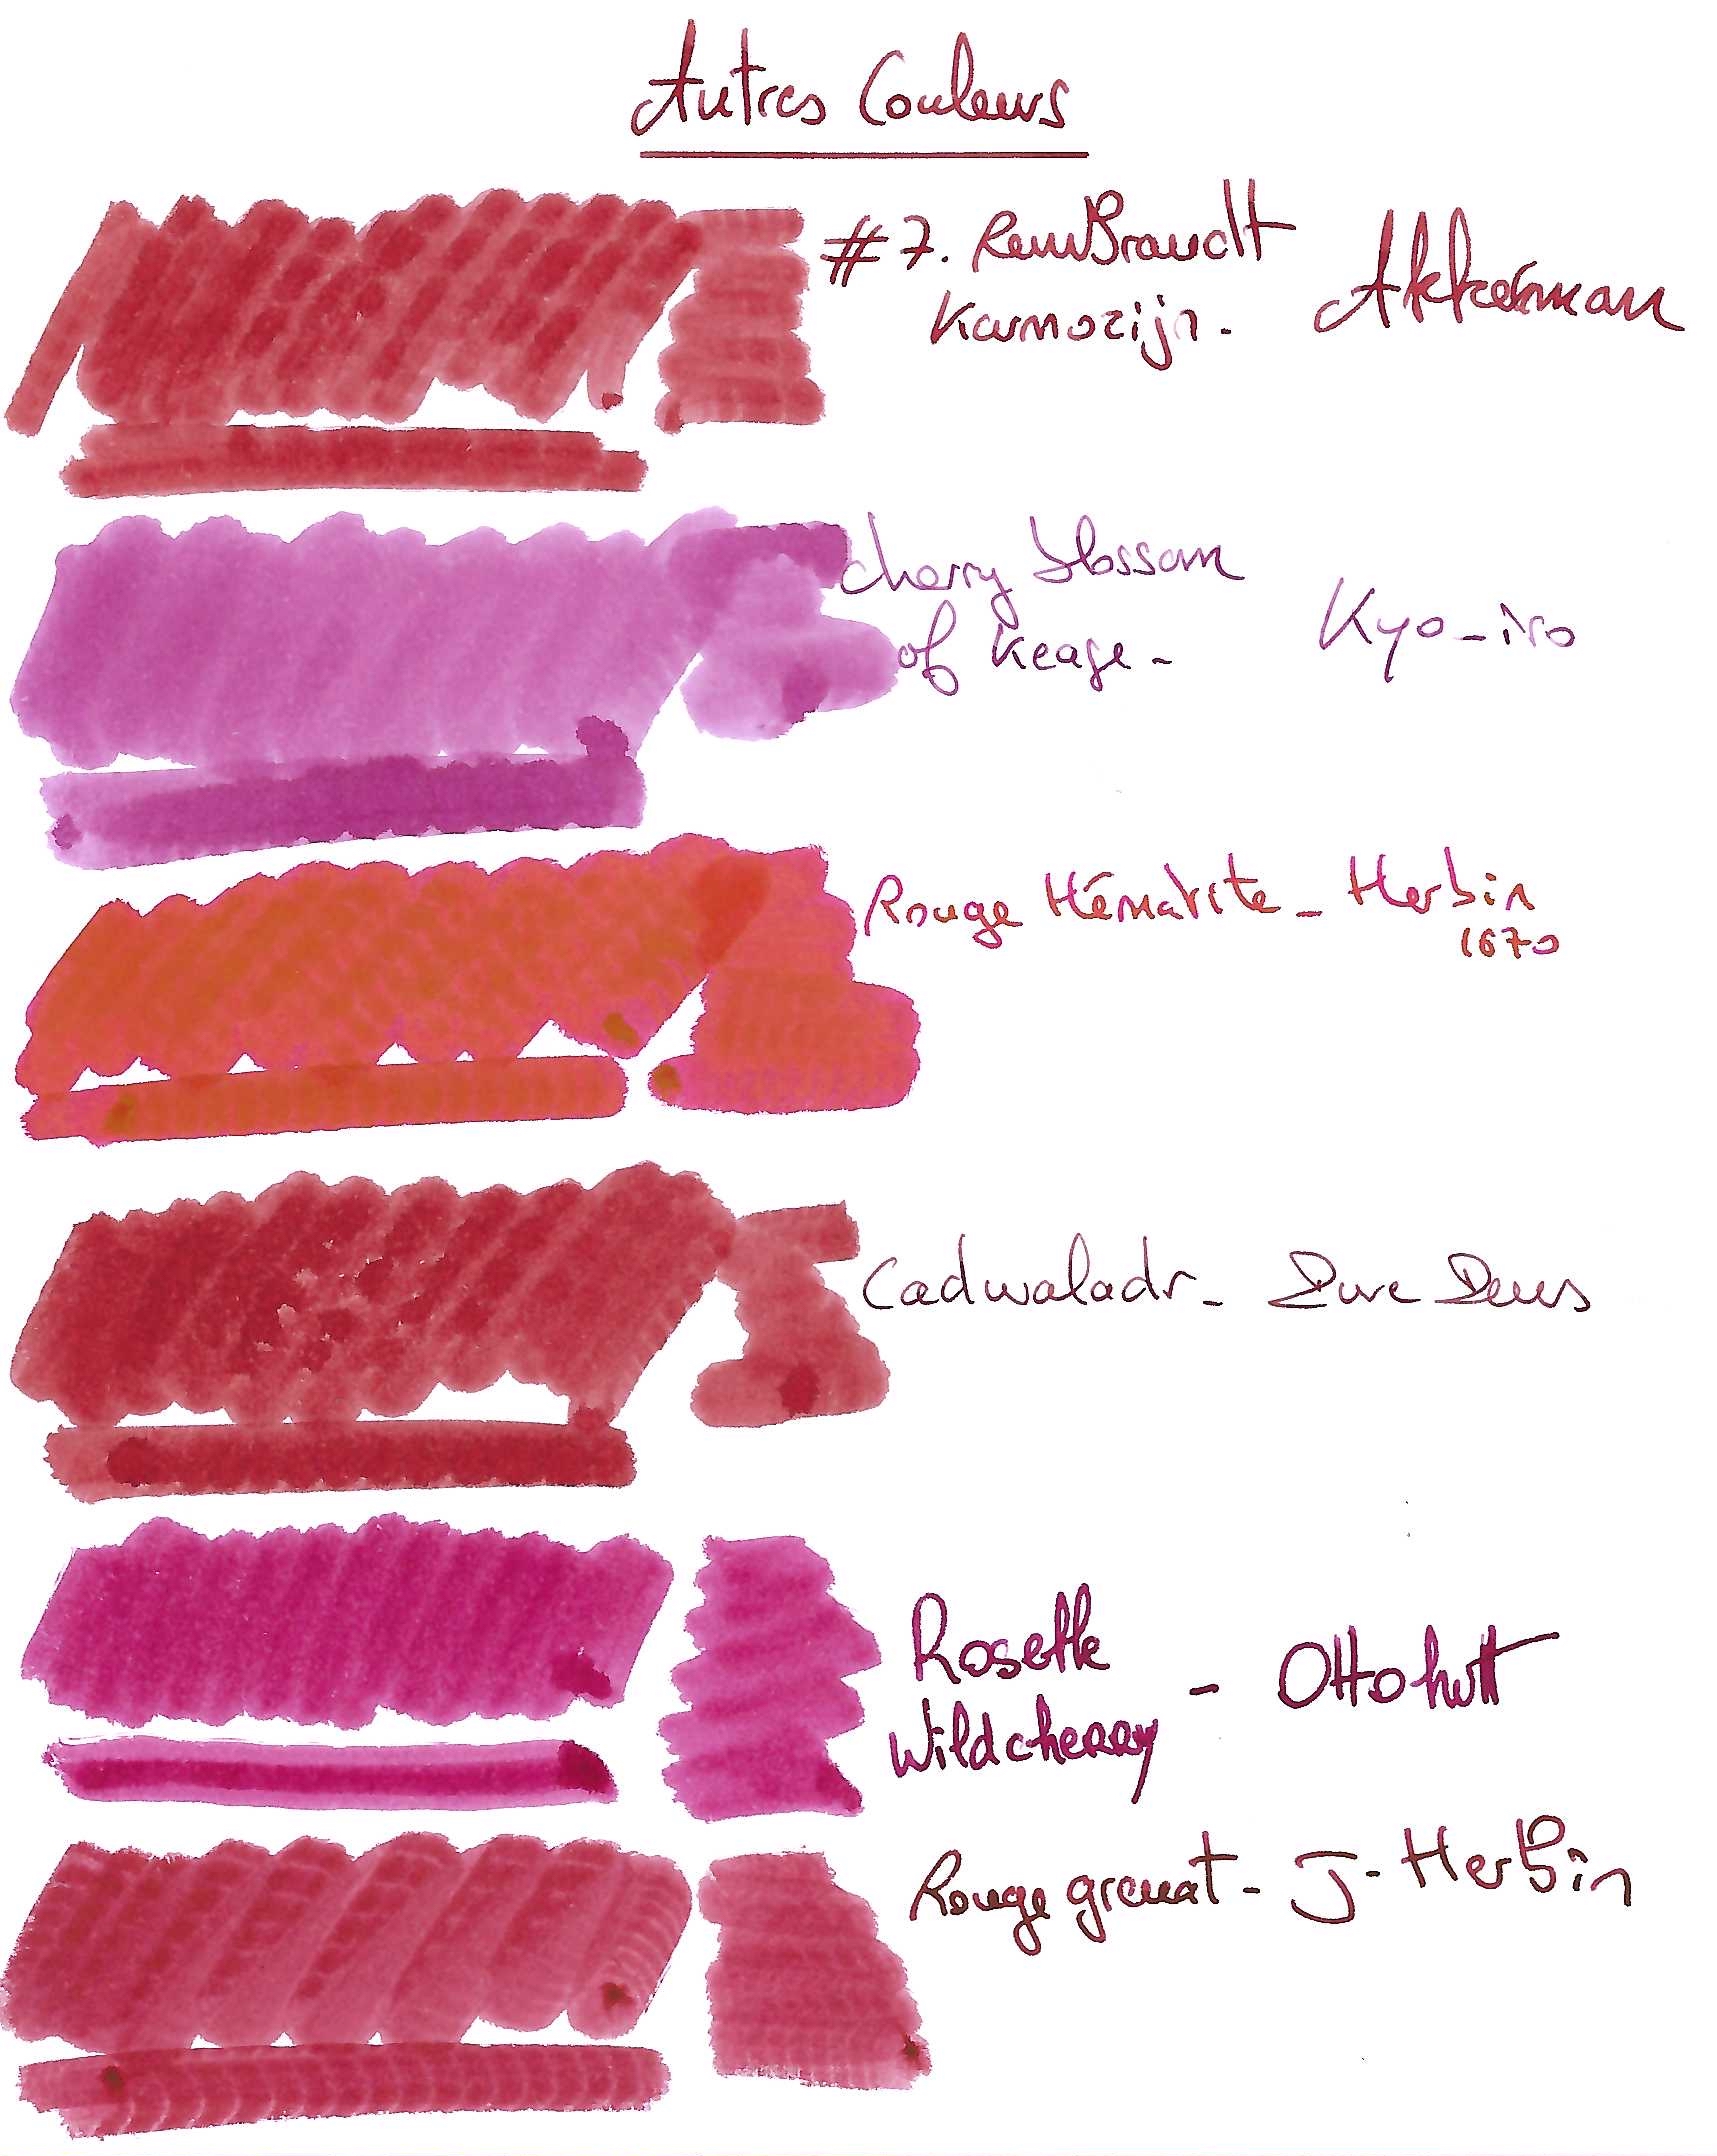 Autres Couleurs
#7. RemBrandt Akkerman
Karmozijn.
Cherry blossom
of Keage - Kyo-iro
Rouge Hématite - Herbin
1670
Cadwaladr - Dure Deus
Rosette
Wildcherry - Ottohutt
Rouge grenat - J. Herbin